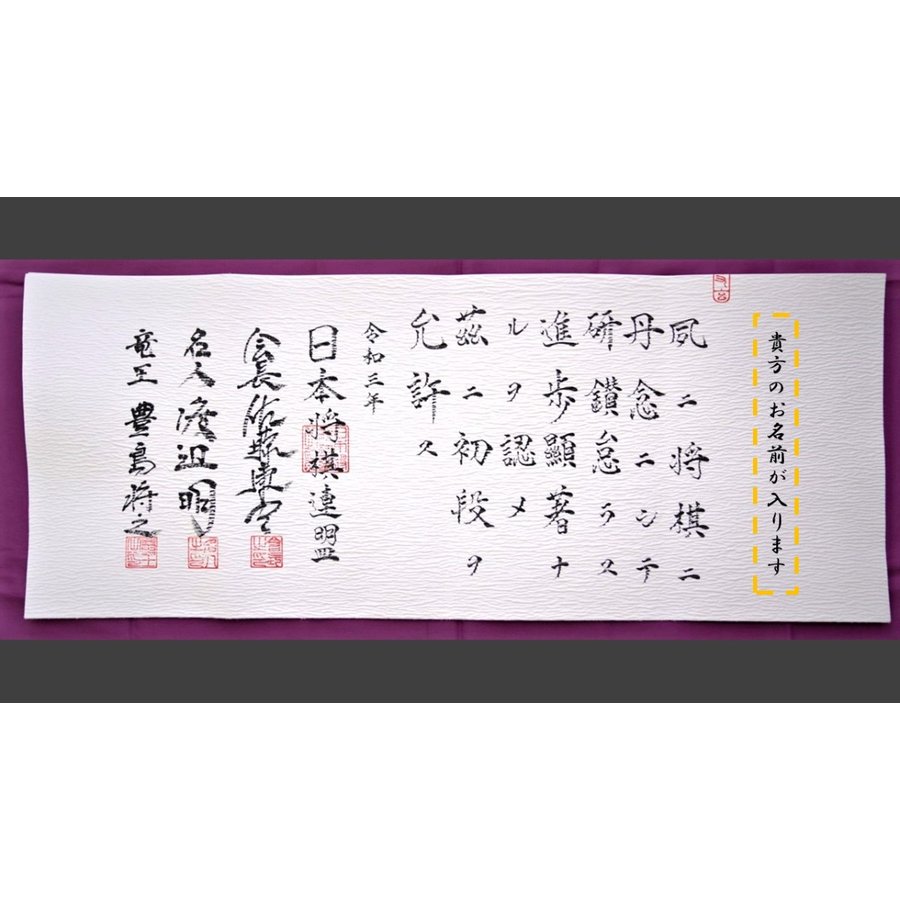 貴方のお名前が入ります
夙ニ将棋ニ
丹念ニシテ
研鑚怠ラス
進歩顯著ナ
ルヲ認メ
茲ニ初段ヲ
允許ス
令和三年
日本将棋連盟
会長佐藤康光
名人渡辺明
竜王豊島将之